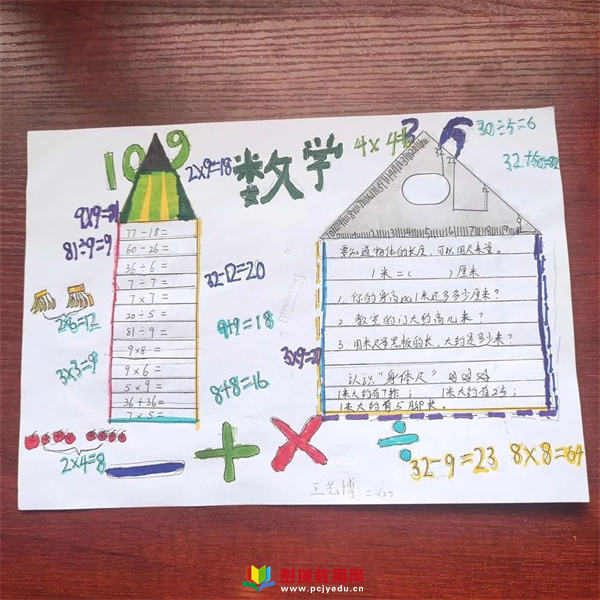 109
数学
2×9=18
9×9=81
81÷9=9
77-18=
60-26=
36÷6=
7÷7=
7×7=
20÷5=
81÷9=
9×8=
9×6=
5×9=
36+36=
7×5=
2×6=12
3×3=9
2×4=8
32-12=20
9+9=18
8+8=16
4×4
36
30÷5=6
3×9=27
要知道物体的长度，可以用尺来量。
1米=( )厘米
1. 你的身高比1米还多多少厘米？
2. 教室的门大约高几米？
3. 用米尺量黑板的长，大约是多少米？
认识“身体尺”
1米大约有7拃； 1米大约有2步；
1米大约有5脚长。
+ × ÷
32-9=23 8×8=64
王艺博
www.pcjyedu.cn